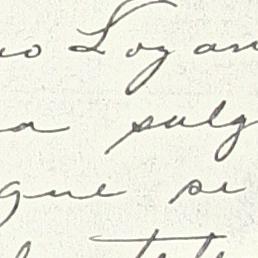 no Logan
a pulg
que se